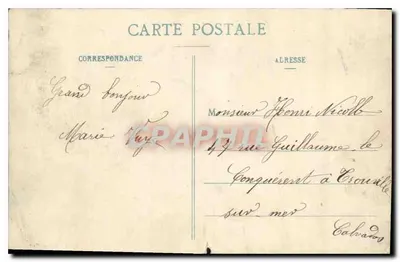 CARTE POSTALE
CORRESPONDANCE
ADRESSE
Grand bonjour
Marie
Monsieur Henri Nicolle
47 rue Guillaume le
Conquérent à Trouville
sur-mer
Calvados